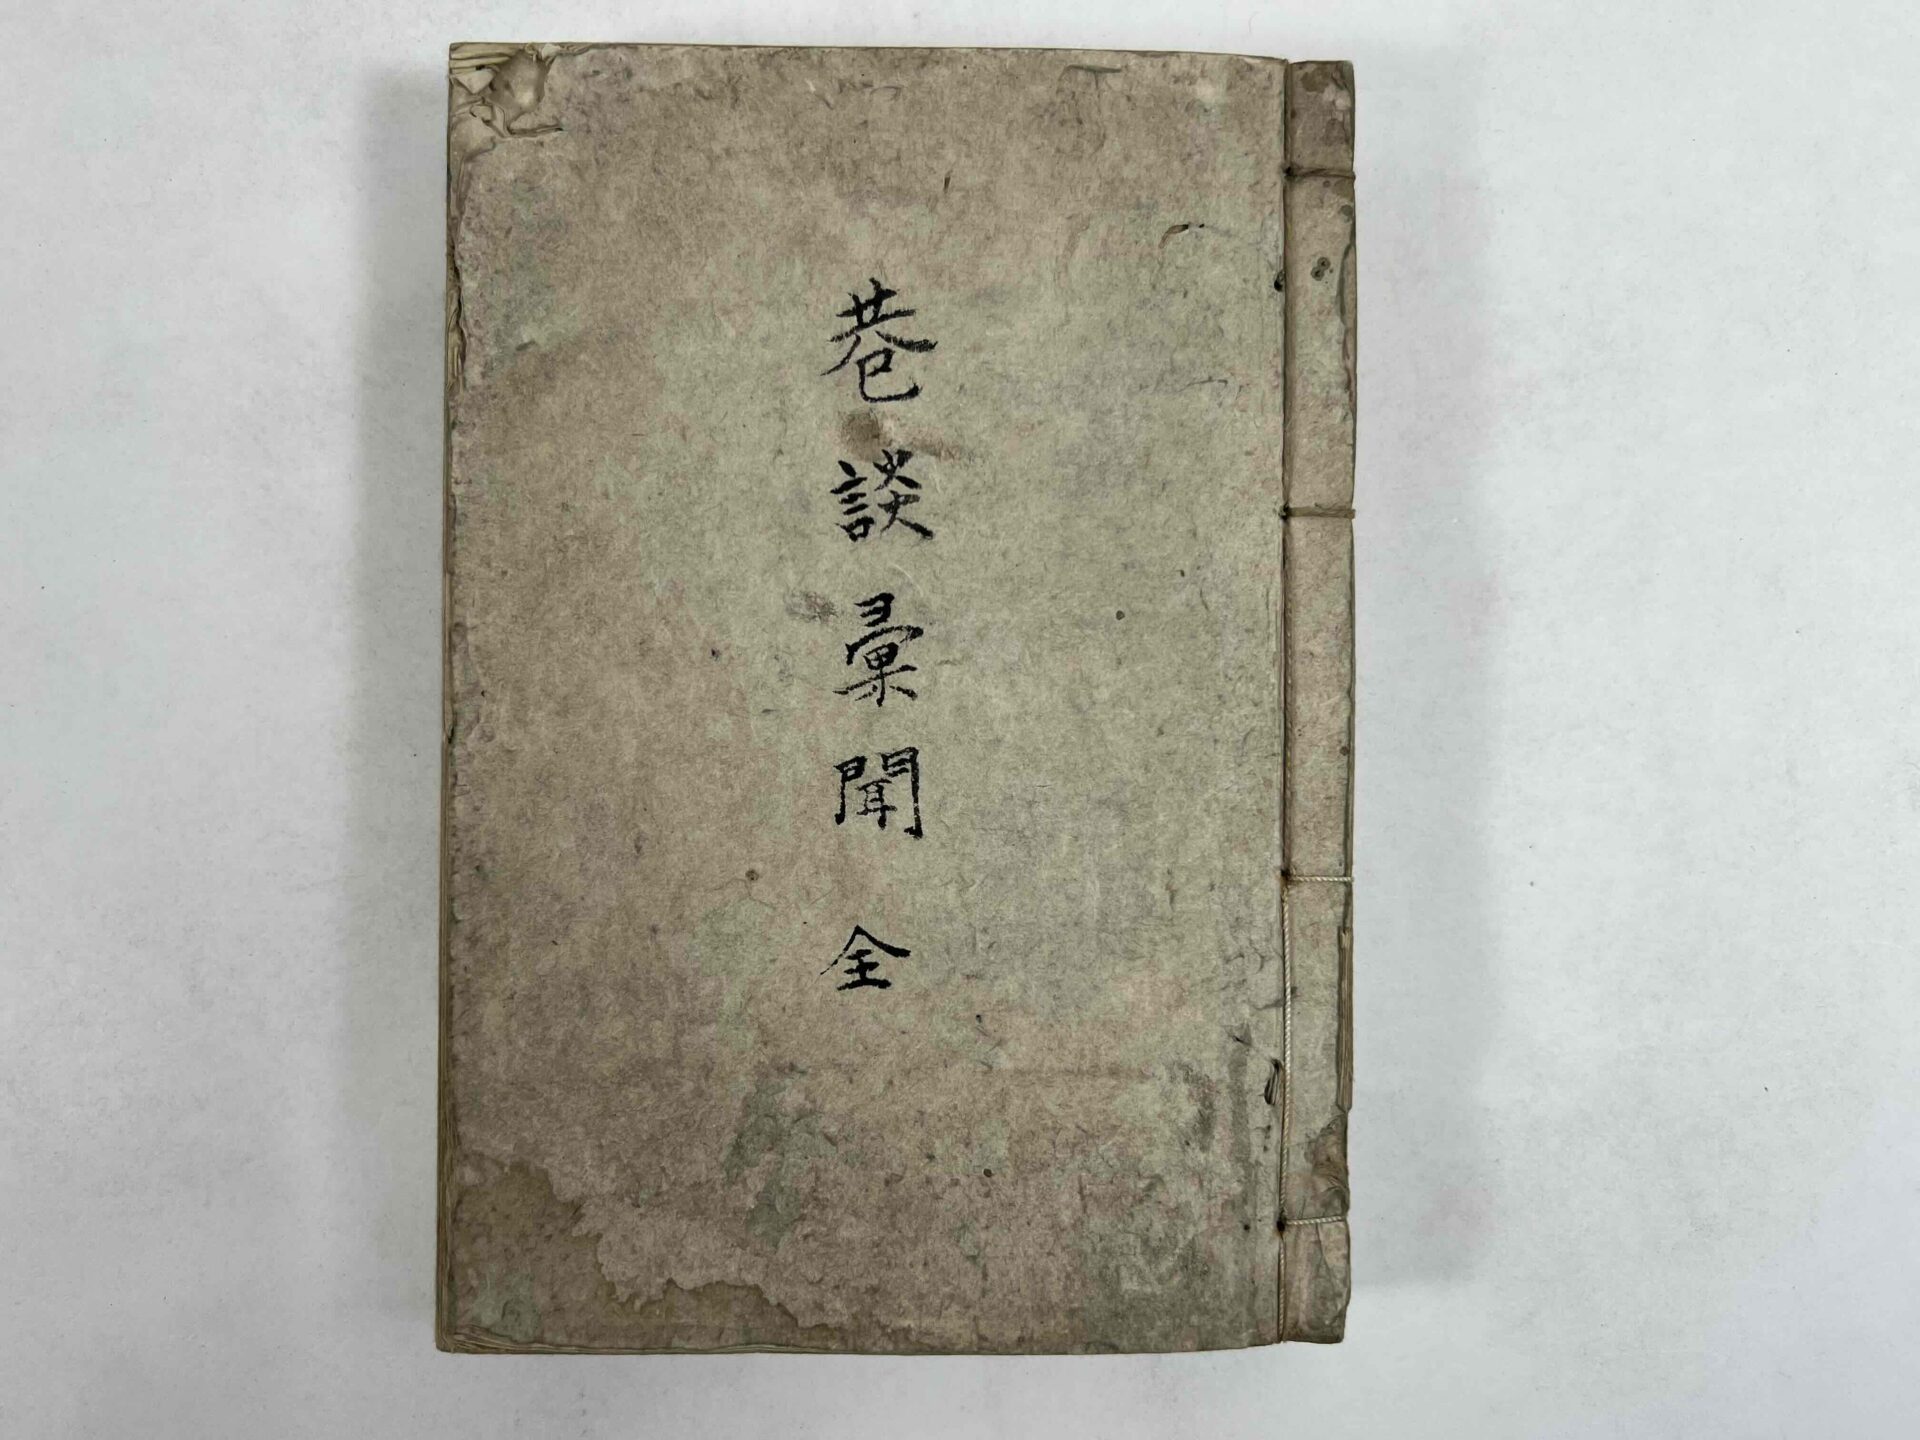 巷談彙聞全